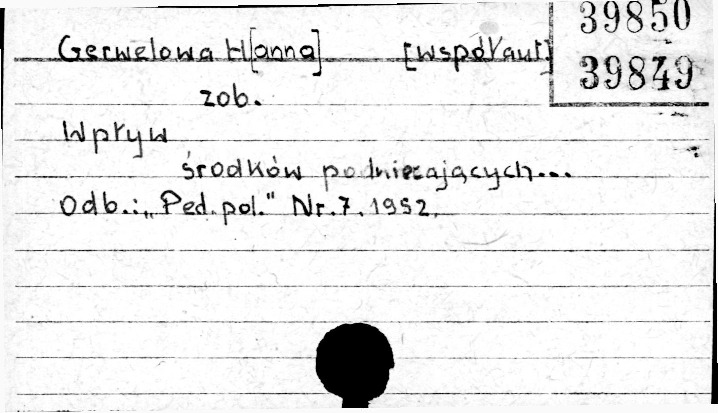 39850
Gerwelowa H[anna] [współaut]
39849
zob.
Wpływ
środków podniecających...
Odb.: „Ped. pol." Nr. 7. 1952.